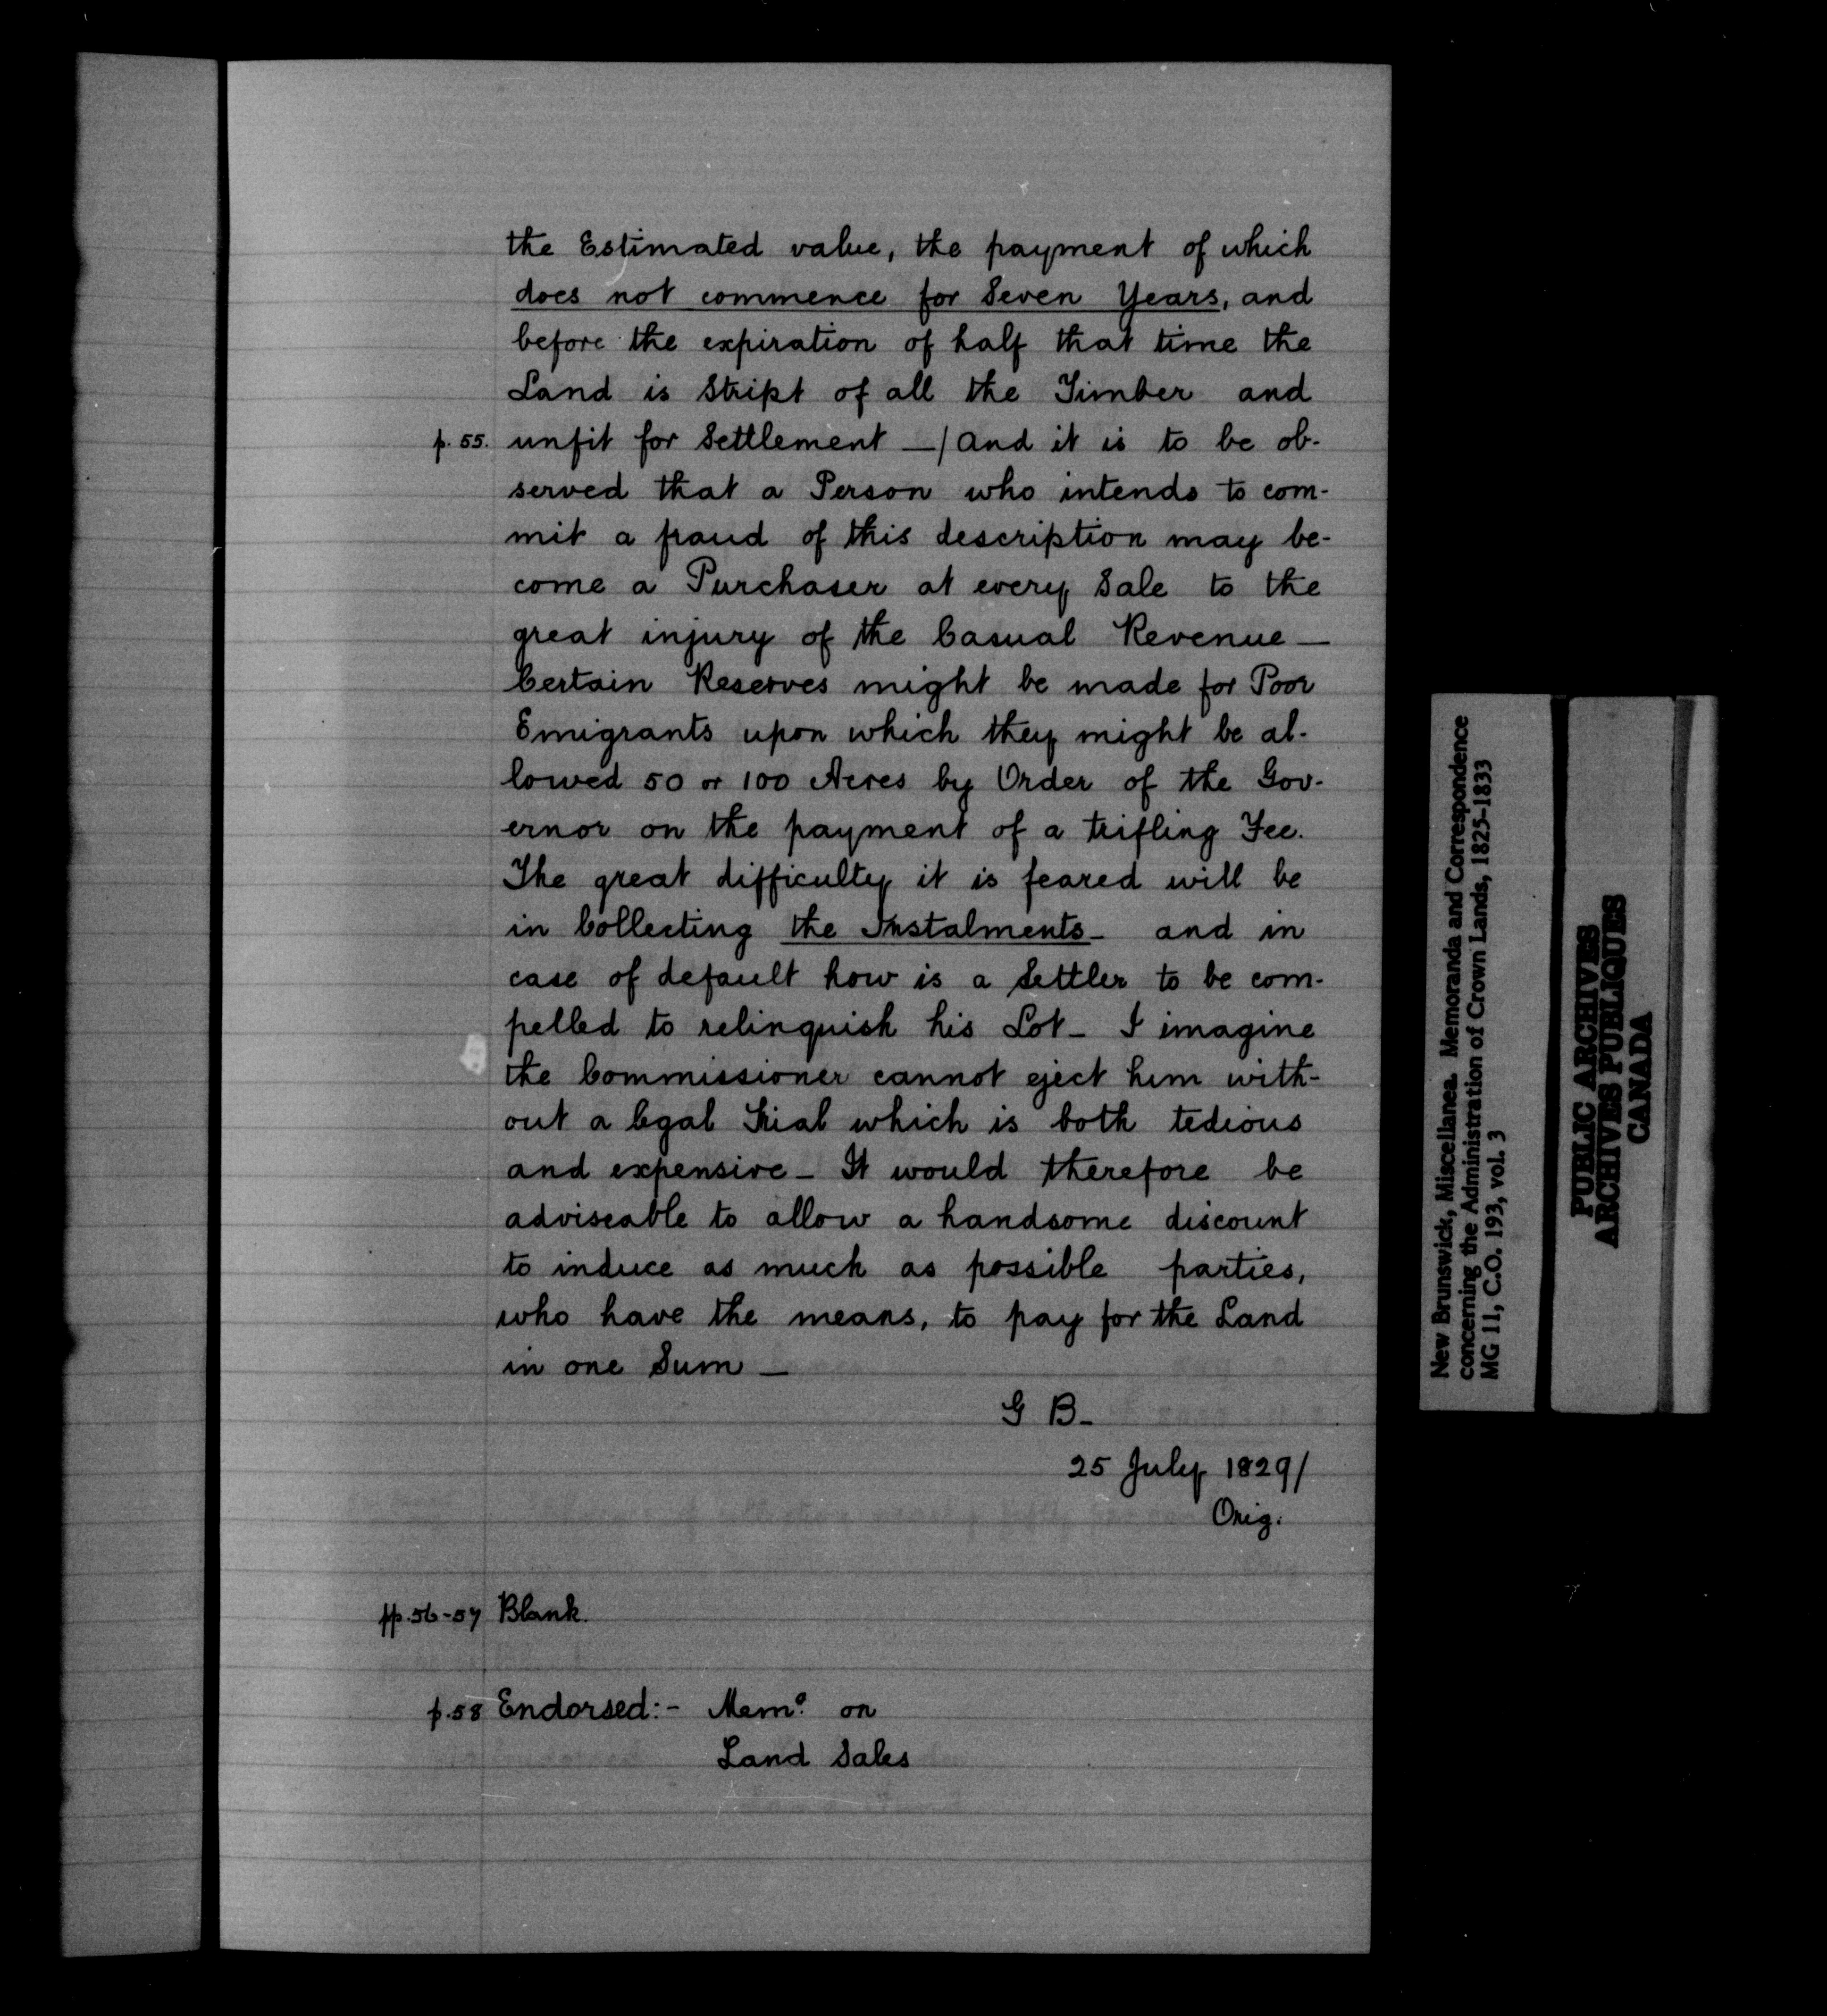 the Estimated value, the payment of which
does not commence for Seven Years, and
before the expiration of half that time the
Land is Stript of all the Timber and
p. 55. unfit for Settlement —/ and it is to be ob-
served that a Person who intends to com-
mit a fraud of this description may be-
come a Purchaser at every Sale to the
great injury of the Casual Revenue —
Certain Reserves might be made for Poor
Emigrants upon which they might be al-
lowed 50 or 100 Acres by Order of the Gov-
ernor on the payment of a trifling Fee.
The great difficulty it is feared will be
in Collecting the Instalments - and in
case of default how is a Settler to be com-
pelled to relinquish his Lot - I imagine
the Commissioner cannot eject him with-
out a legal Trial which is both tedious
and expensive - It would therefore be
adviseable to allow a handsome discount
to induce as much as possible parties,
who have the means, to pay for the Land
in one Sum —
G B-
25 July 1829/
Orig.
pp. 56-57 Blank.
p. 58 Endorsed:- Memo. on
Land Sales
New Brunswick, Miscellanea. Memoranda and Correspondence
concerning the Administration of Crown Lands, 1825-1833
MG 11, C.O. 193, vol. 3
PUBLIC ARCHIVES
ARCHIVES PUBLIQUES
CANADA